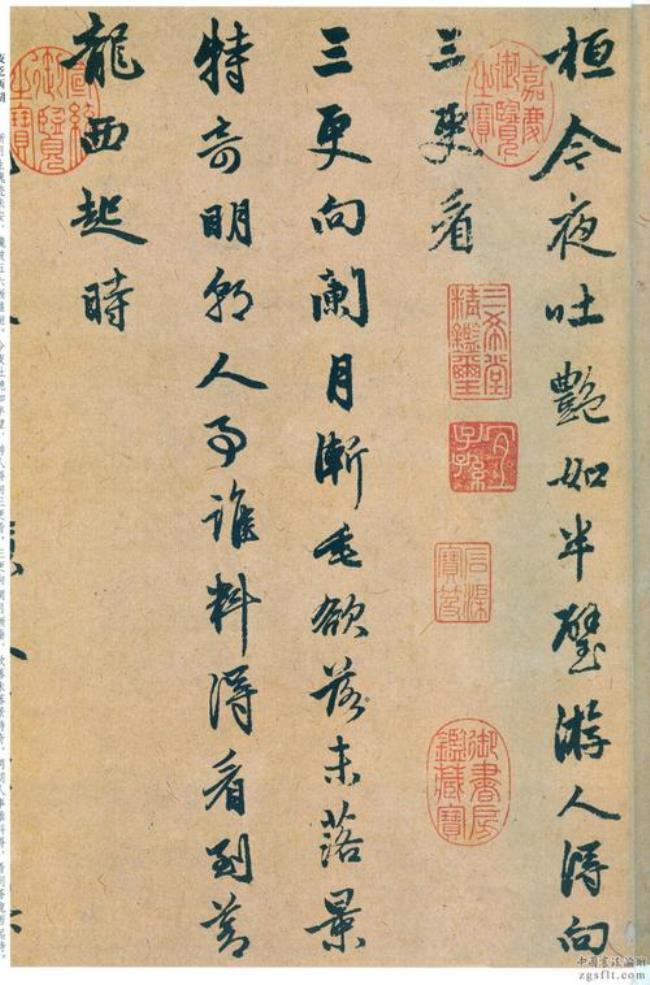 桓今夜吐艷如半璧游人得向
三更看
三更向闌月漸垂欲落未落景
特奇明朝人事誰料得看到蒼
龍西起時
嘉慶御覽之寶
三希堂精鑑璽
宜子孫
石渠寶笈
御書房鑑藏寶
宣統御覽之寶
zgsflt.com